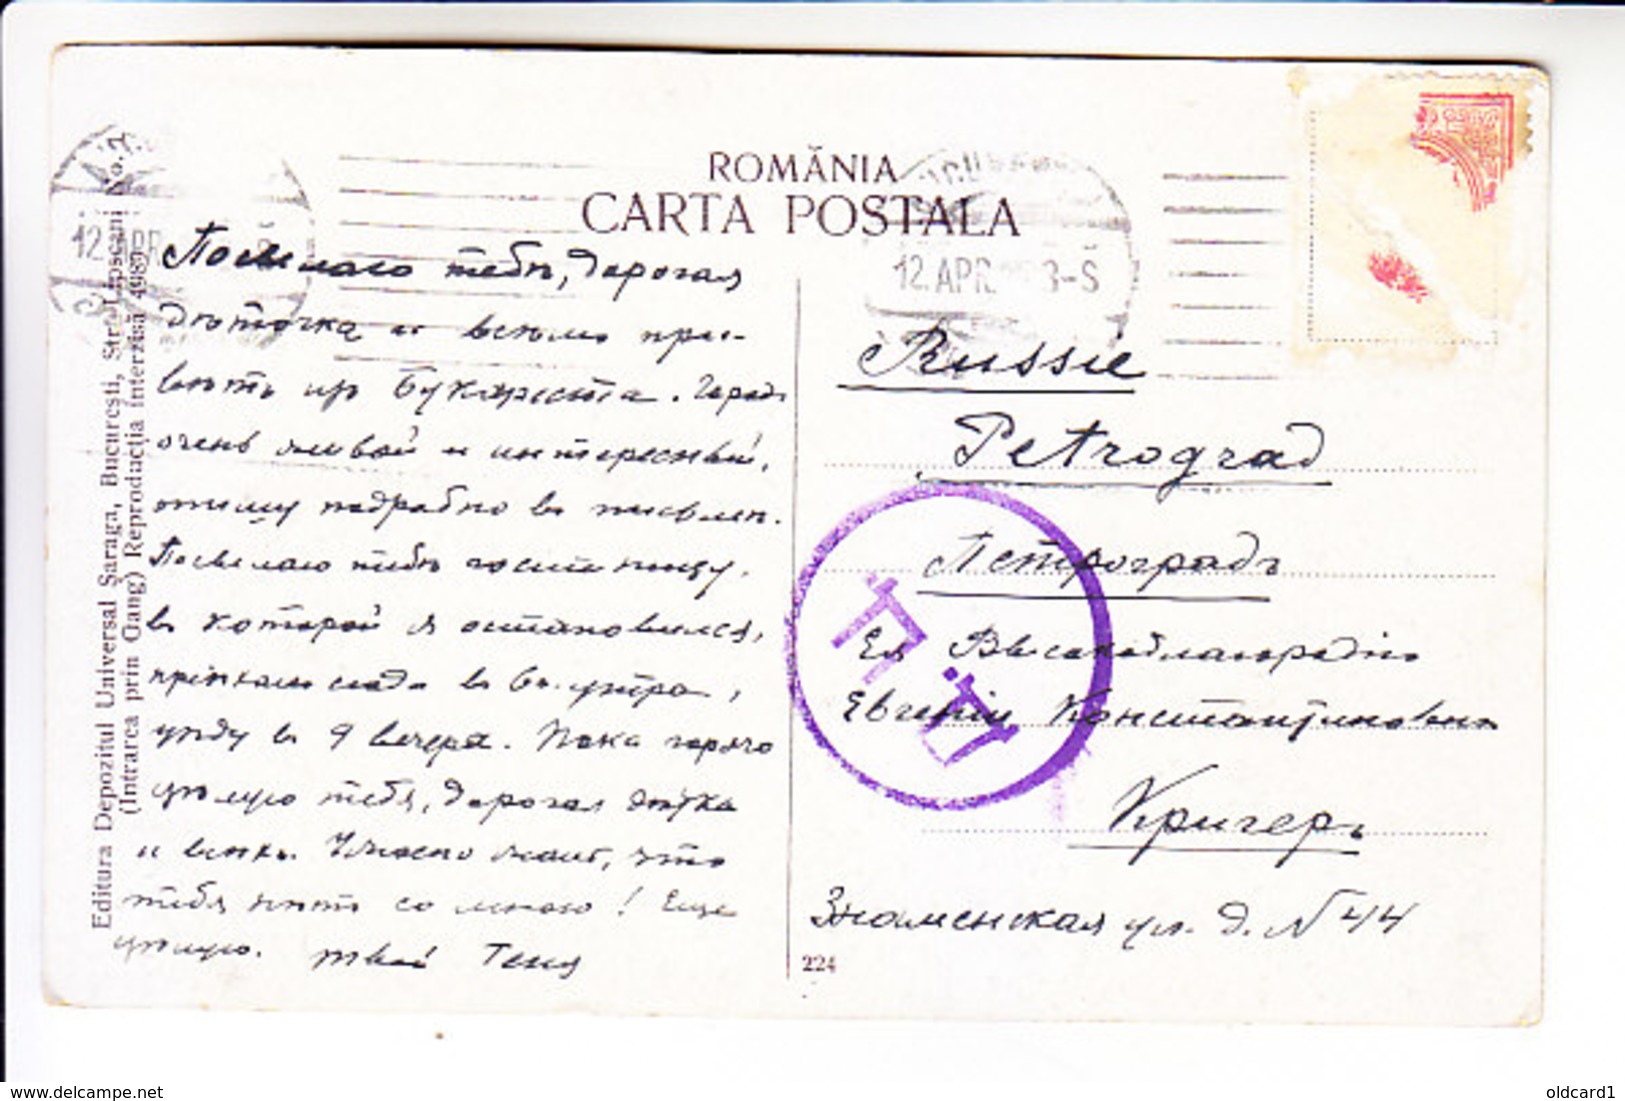 ROMÂNIA
CARTA POSTALA
12 APR
12. APR. 3-S
Editura Depozitul Universal Şaraga, Bucureşti, Str. Lipscani No. 7.
(Intrarea prin Gang) Reproducţia interzisă 4989
Посылаю тебѣ, дорогая
дѣточка и всѣмъ при-
вѣтъ изъ Букареста. Городъ
очень живой и интересный,
опишу подробно въ письмѣ.
Посылаю тебѣ гостиницу,
въ которой я остановился,
пріѣхалъ сюда въ 6 ч. утра,
уѣду въ 9 вечера. Пока горячо
цѣлую тебя, дорогая дѣтка
и всѣхъ. Ужасно жаль, что
тебя нѣтъ со мною! Еще
цѣлую. твой Геня
Russie
Petrograd
Петроградъ
Ея Высокоблагородію
Евгеніи Константиновнѣ
Кригеръ
Знаменская ул. д. № 44
Д. Ц.
224
oldcard1